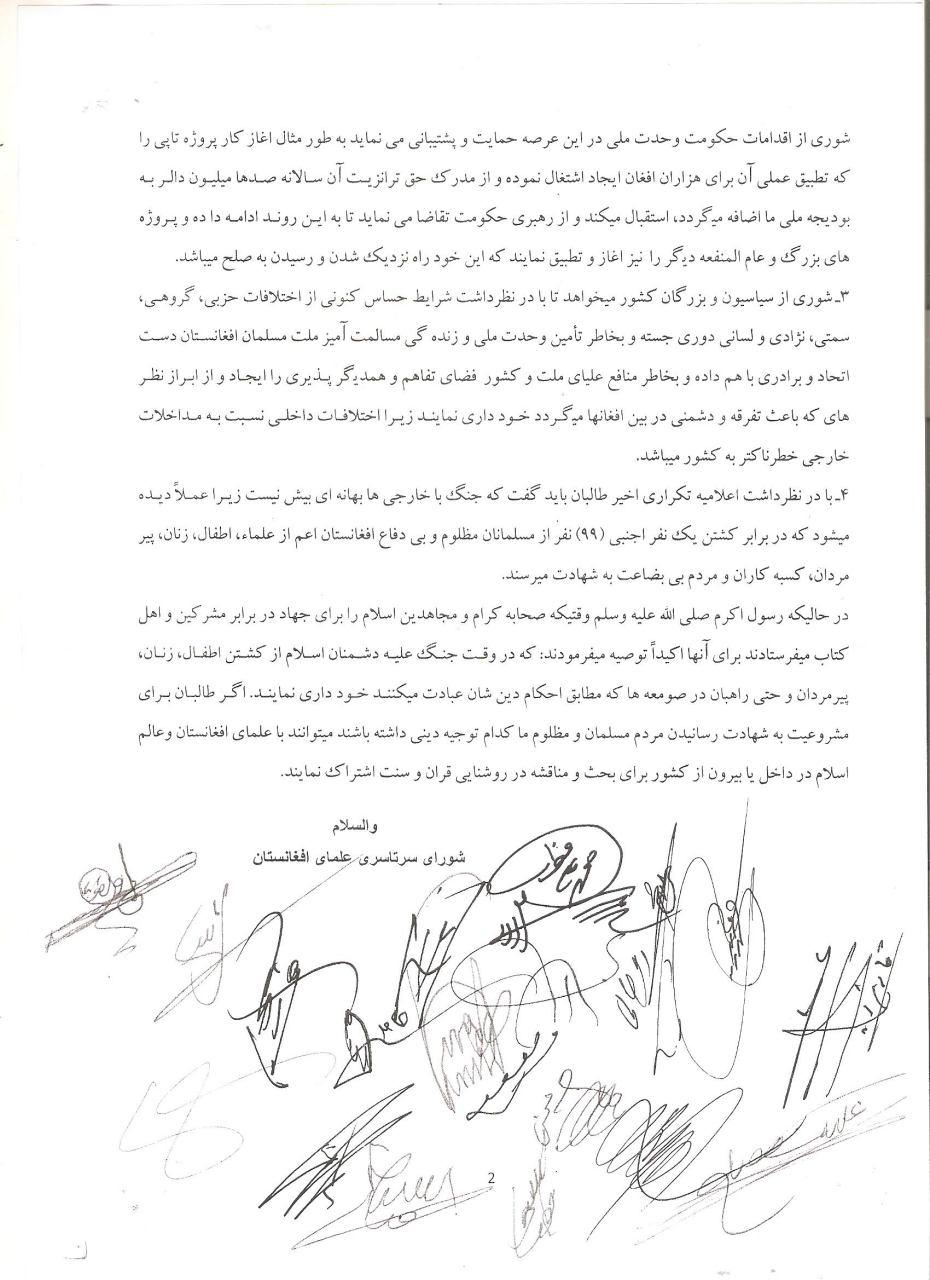 شوری از اقدامات حکومت وحدت ملی در این عرصه حمایت و پشتیبانی می نماید به طور مثال اغاز کار پروژه تاپی را
که تطبیق عملی آن برای هزاران افغان ایجاد اشتغال نموده و از مدرک حق ترانزیت آن سالانه صدها میلیون دالر به
بودیجه ملی ما اضافه میگردد، استقبال میکند و از رهبری حکومت تقاضا می نماید تا به این روند ادامه دا ده و پروژه
های بزرگ و عام المنفعه دیگر را نیز اغاز و تطبیق نمایند که این خود راه نزدیک شدن و رسیدن به صلح میباشد.
۳ـ شوری از سیاسیون و بزرگان کشور میخواهد تا با در نظرداشت شرایط حساس کنونی از اختلافات حزبی، گروهی،
سمتی، نژادی و لسانی دوری جسته و بخاطر تأمین وحدت ملی و زنده گی مسالمت آمیز ملت مسلمان افغانستان دست
اتحاد و برادری با هم داده و بخاطر منافع علیای ملت و کشور فضای تفاهم و همدیگر پذیری را ایجاد و از ابراز نظر
های که باعث تفرقه و دشمنی در بین افغانها میگردد خود داری نمایند زیرا اختلافات داخلی نسبت به مداخلات
خارجی خطرناکتر به کشور میباشد.
۴ـ با در نظرداشت اعلامیه تکراری اخیر طالبان باید گفت که جنگ با خارجی ها بهانه ای بیش نیست زیرا عملاً دیده
میشود که در برابر کشتن یک نفر اجنبی (۹۹) نفر از مسلمانان مظلوم و بی دفاع افغانستان اعم از علماء، اطفال، زنان، پیر
مردان، کسبه کاران و مردم بی بضاعت به شهادت میرسند.
در حالیکه رسول اکرم صلی الله علیه وسلم وقتیکه صحابه کرام و مجاهدین اسلام را برای جهاد در برابر مشرکین و اهل
کتاب میفرستادند برای آنها اکیداً توصیه میفرمودند: که در وقت جنگ علیه دشمنان اسلام از کشتن اطفال، زنان،
پیرمردان و حتی راهبان در صومعه ها که مطابق احکام دین شان عبادت میکنند خود داری نمایند. اگر طالبان برای
مشروعیت به شهادت رسانیدن مردم مسلمان و مظلوم ما کدام توجیه دینی داشته باشند میتوانند با علمای افغانستان وعالم
اسلام در داخل یا بیرون از کشور برای بحث و مناقشه در روشنایی قران و سنت اشتراک نمایند.
والسلام
شورای سرتاسری علمای افغانستان
2